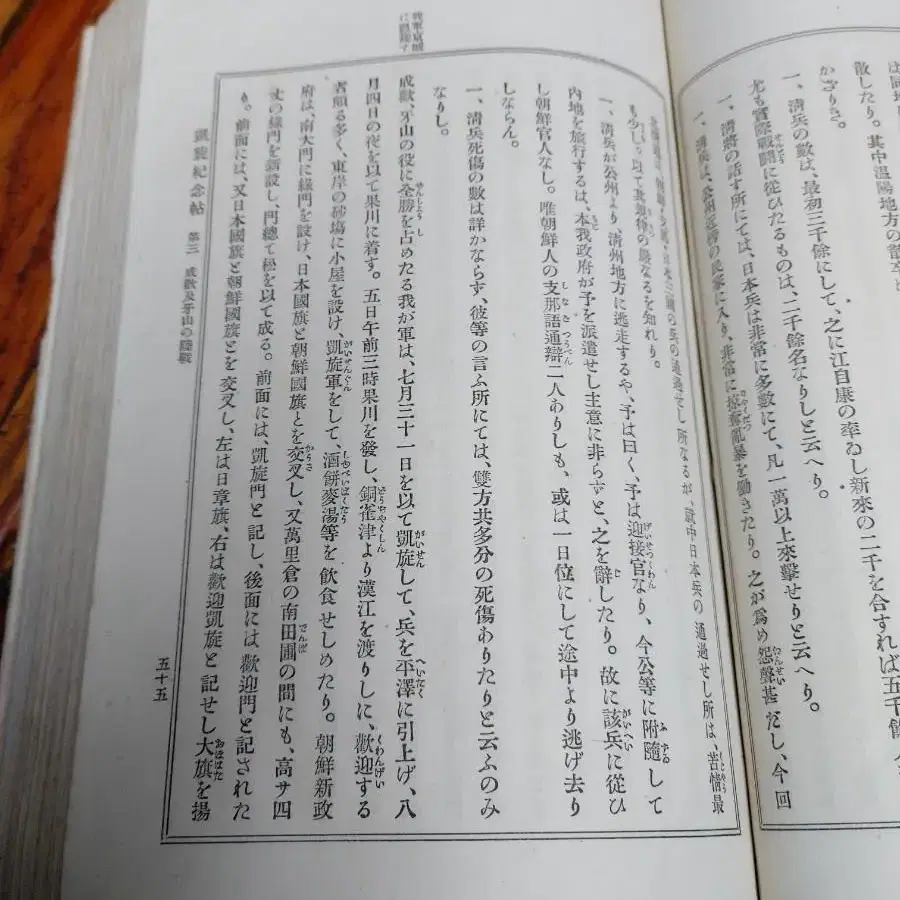 は同地
散したり。其中温陽地方の散卒と
かざりき。
一、清兵の數は、最初三千餘にして、之に江自康の率ゐし新來の二千を合すれば五千餘、今
尤も實際戰鬪に從ひたるものは、二千餘名なりしと云へり。
一、清將の話す所にては、日本兵は非常に多數にて、凡一萬以上來擊せりと云へり。
一、清兵は、公州近傍の民家に入り、非常に掠奪亂暴を働きたり。之が爲め怨聲甚だし、今回
の通過せし所なるが、就中日本兵の通過せし所は、苦情最
も少し。以て其規律の嚴なるを知れり。
一、清兵が公州より、清州地方に逃走するや、予は曰く、予は迎接官なり、今公等に附隨して
内地を旅行するは、本我政府が予を派遣せし主意に非らずと、之を辭したり。故に該兵に從ひ
し朝鮮官人なし。唯朝鮮人の支那語通辯二人ありしも、或は一日位にして途中より逃げ去り
しならん。
一、清兵死傷の數は詳かならず、彼等の言ふ所にては、雙方共多分の死傷ありたりと云ふのみ
なりし。
成歡、牙山の役に全勝を占めたる我が軍は、七月三十一日を以て凱旋して、兵を平澤に引上げ、八
月四日の夜を以て果川に着す。五日午前三時果川を發し、銅雀津より漢江を渡りしに、歡迎する
者頗る多く、東岸の砂塲に小屋を設け、凱旋軍をして、酒餅麥湯等を飲食せしめたり。朝鮮新政
府は、南大門に綠門を設け、日本國旗と朝鮮國旗とを交叉し、又萬里倉の南田圃の間にも、高サ四
丈の綠門を新設し、門總て松を以て成る。前面には、凱旋門と記し、後面には歡迎門と記された
り。前面には、又日本國旗と朝鮮國旗とを交叉し、左は日章旗、右は歡迎凱旋と記せし大旗を揚
凱旋紀念帖　第三　成歡及牙山の陸戰
五十五